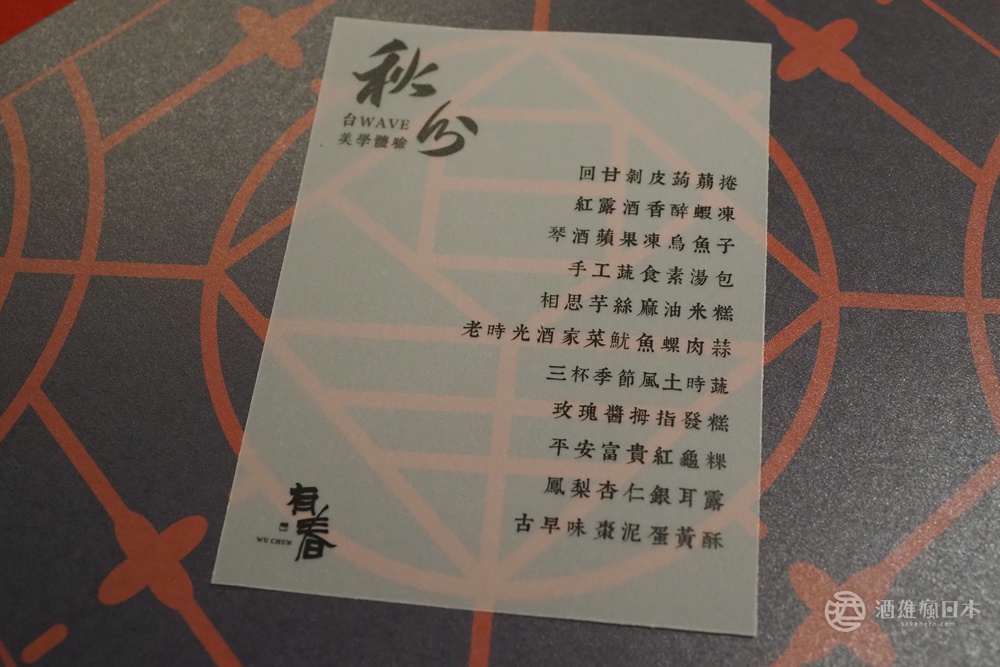 秋分
台WAVE
美學體驗
回甘剝皮蒟蒻捲
紅露酒香醉蝦凍
琴酒蘋果凍烏魚子
手工蔬食素湯包
相思芋絲麻油米糕
老時光酒家菜魷魚螺肉蒜
三杯季節風土時蔬
玫瑰醬拇指發糕
平安富貴紅龜粿
鳳梨杏仁銀耳露
古早味棗泥蛋黃酥
有春
WU CHUN
酒雄瘋日本
sakehero.com